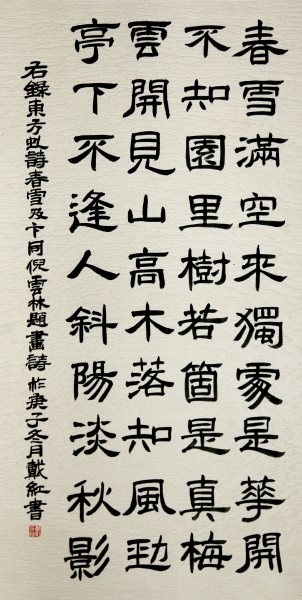 春雪滿空來獨處是華開
不知園里樹若箇是真梅
雲開見山高木落知風勁
亭下不逢人斜陽淡秋影
右錄東方虬詩春雪及卞同倪雲林題畫詩 於庚子冬月戴紅書